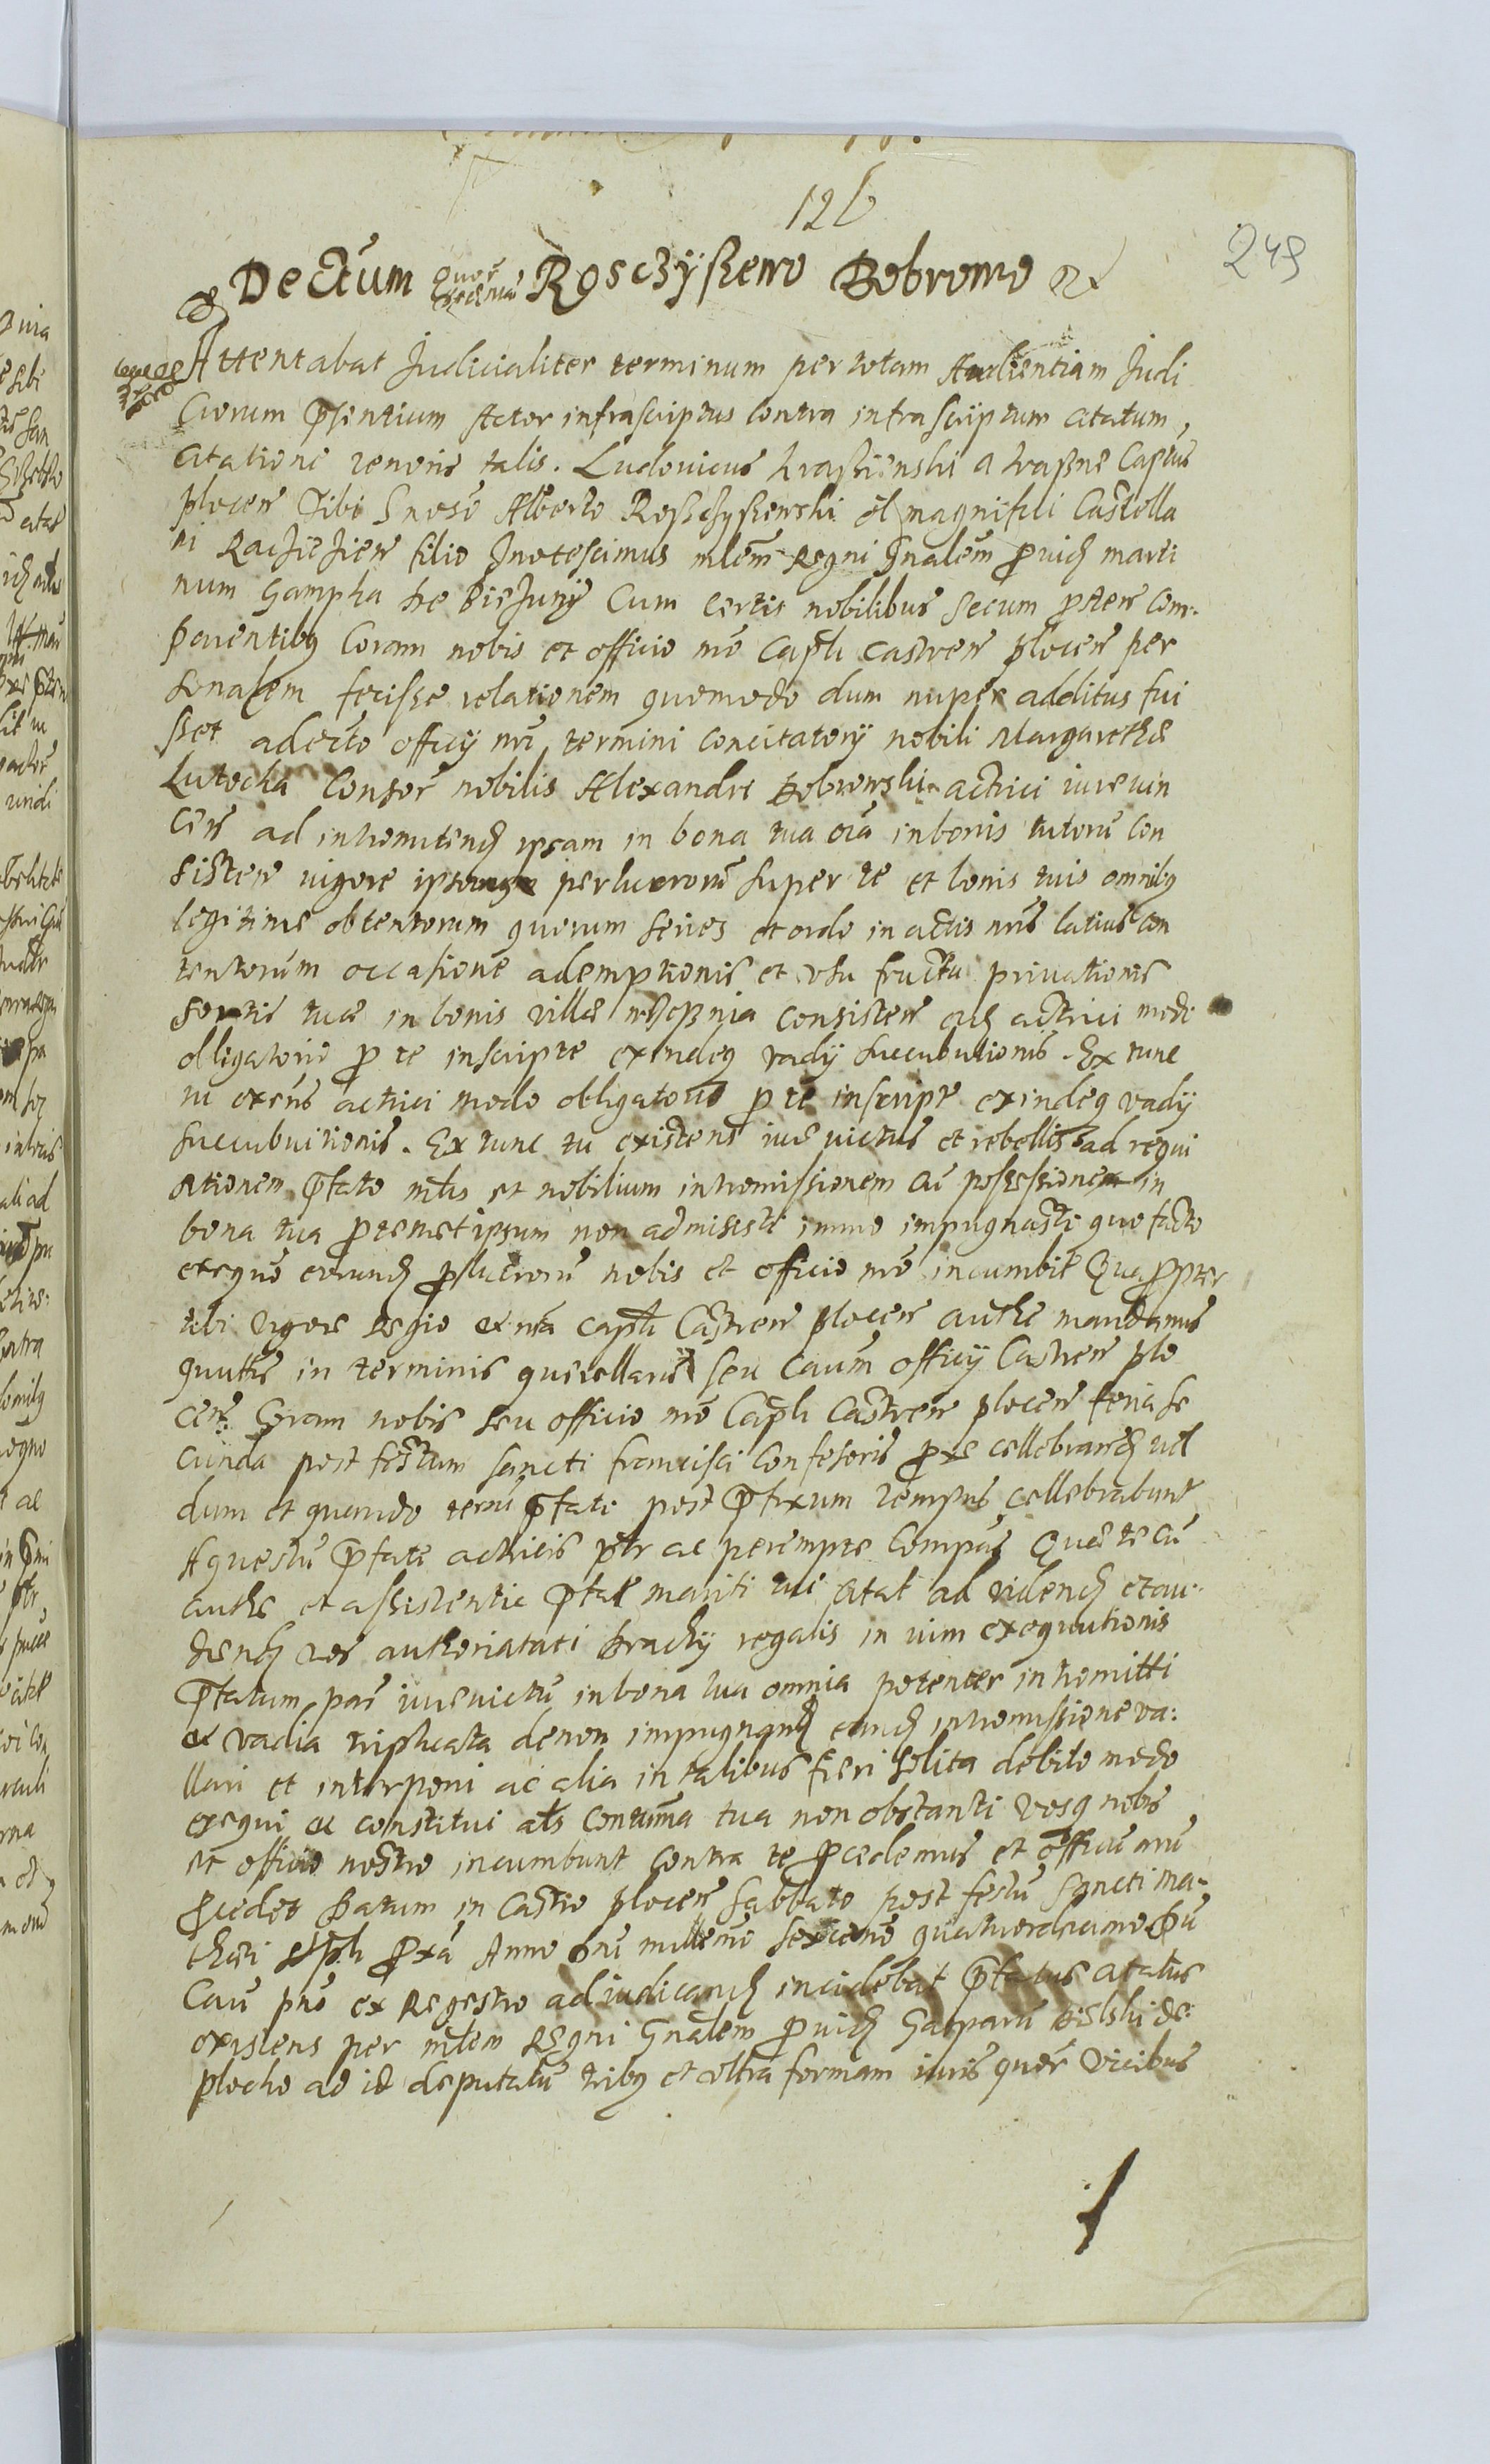 12b
249
Dectum Roschyszewo Bobrowo
Attentabat Judicialiter terminum per totam Audientiam Judi
ciorum Pntium Actor infrascriptus contra infrascriptum citatum,
citatione tenoris talis. Ludovicus Krassienski a Krassne Captus
plocen Tibi Gnoso Alberto Roszchyszewski ol magnifici Castella
ni Raciezien filio Inotescimus mlem Regni Gnalem marti
num Gampka de Biezuny Cum certis nobilibus secum com
parentibq Coram nobis et officio nro Capli castren plocen per
sonalem fecisse relationem quomodo dum nuper additus fui
sset adecto officy nri termini concitatory nobili Margarethae
Lutocka Consor nobilis Alexandri Bobrowski actrici iurevin
cen ad intromitend ipsam in bona tua oia in bonis tutoru con
sisten vigore perlucrorum super te et bonis tuis omnibq
legitime obtentorum quorum series et ordo in actis nris latius con
tentorum occasione ademptionis et usu fructu privationis
sortis tuae in bonis villae consisten actrici modo
obligatorio p te inscripte exindeq vady succubutionis. Ex tunc
tu actrici modo obligatorio p te inscripte exindeq vady
succubuitionis. Ex tunc tu existens iure victus et rebellis ad requi
sitionem pfato mlis et nobilium intromissionem ac possessionem in
bona tua ipsum non admisisti immo impugnasti quo facto
nobis et officio nro incumbit Quapropter
tibi vigore Regio et nra capli Castren plocen authe mandamus
quatus in terminis querellaru seu Caum officy Castren plo
cen. Coram nobis seu officio nro Capli Castren plocen feria se
cunda post festum sancti francisci Confesoris pxe cellebrand vel
dum et quando temi pfati post pfixum tempus cellebrabunt
A questu pfate actricis ptr ac perempte Compas Quae te cu
auths et assistentia pfate mariti sui citat ad videnda et au
dienda authoriatati Brachy regalis in vim exequutionis
Pfatam iurevictu in bona tua omnia potenter intromitti
ac vadia triplicata de non impugnand eand intromissione va:
llari et interponi ac alia in talibus fieri solita debito modo
exequi ac constitui als contuma tua non obstanti vosq nobis
et officio nostro incumbunt contra te pcedemus et officiu nru
pcedet Datum in Castro plocen Sabbato post festu Sancti Ma
thaei Apli pxa Anno dni millemo sexcenmo quatuordecimo Du
Cau pns ex Regestro adiudicand incidebat pfatus citatus
existens per mlem Regni Gnalem pvid Gasparu Bielski de
plocko ad id deputatu tribq et ultra formam iuris quer vicibus